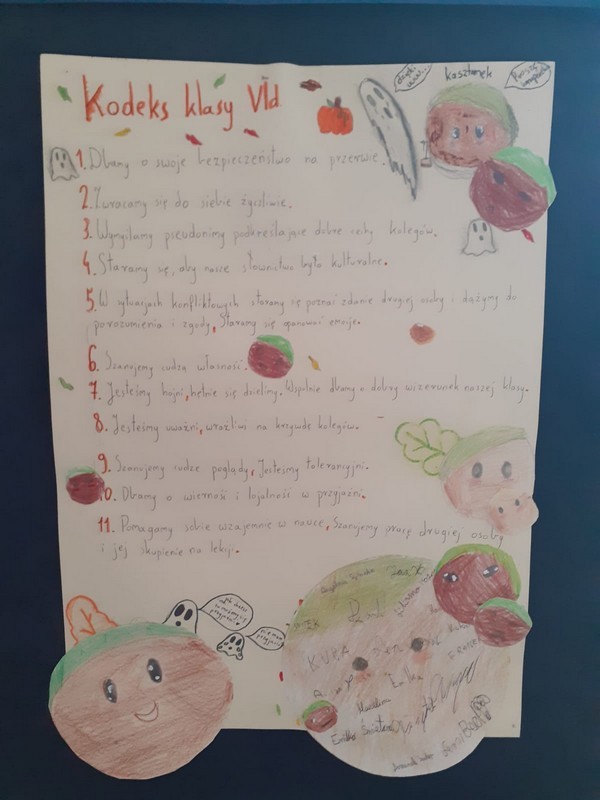 Kodeks klasy VId
kasztanek
1. Dbamy o swoje bezpieczeństwo na przerwie.
2. Zwracamy się do siebie życzliwie.
3. Wymyślamy pseudonimy podkreślające dobre cechy kolegów.
4. Staramy się, aby nasze słownictwo było kulturalne.
5. W sytuacjach konfliktowych staramy się poznać zdanie drugiej osoby i dążymy do
porozumienia i zgody, Staramy się opanować emocje.
6. Szanujemy cudzą własność.
7. Jesteśmy hojni, hętnie się dzielimy. Wspólnie dbamy o dobry wizerunek naszej klasy.
8. Jesteśmy uważni, wrażliwi na krzywdę kolegów.
9. Szanujemy cudze poglądy, Jesteśmy tolerancyjni.
10. Dbamy o wierność i lojalność w przyjaźni.
11. Pomagamy sobie wzajemnie w nauce, Szanujemy pracę drugiej osoby
i jej skupienie na lekcji.
KUBA
Emilka